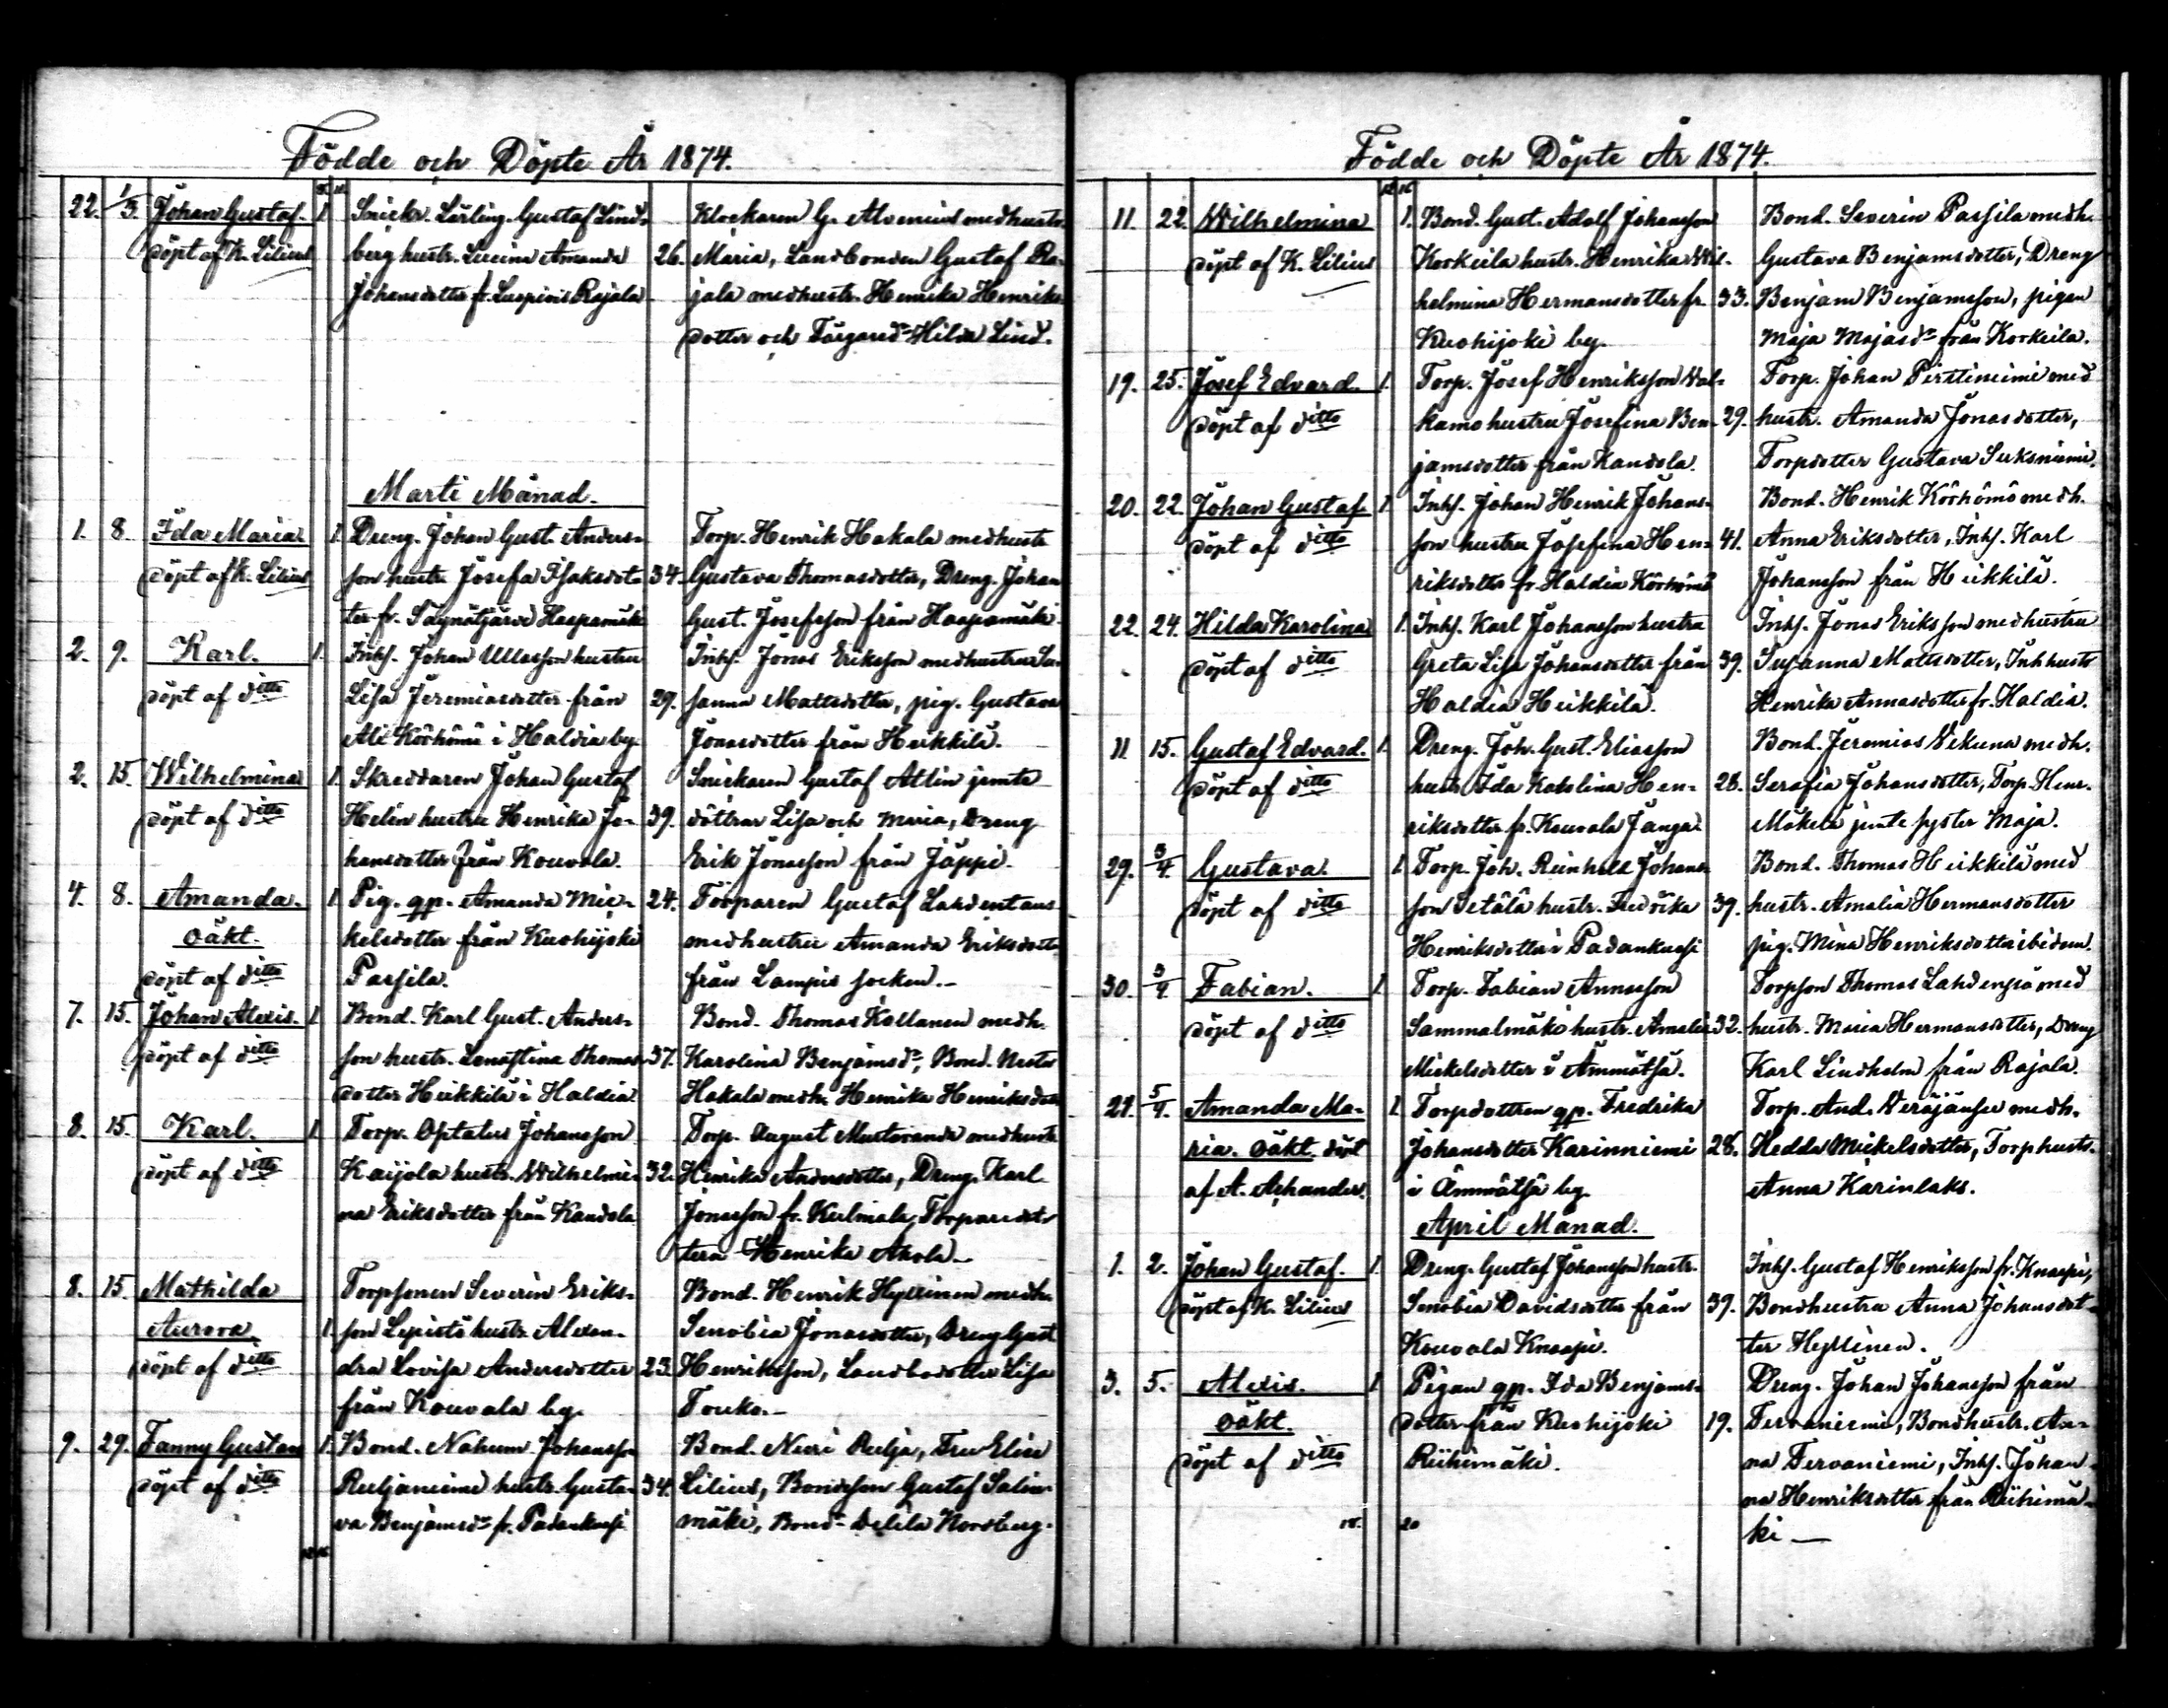 Födde och Döpte År 1874.
22. 1/3. Johan Gustaf. 1. Snick. Lärling. Gustaf Lind- Klockaren G. Alvenius med hustr.
döpt af K. Lilius berg hustr. Lucina Amanda 26. Maria, Landbonden Gustaf Ra-
Johansdotter fr. Rajala jala med hustr. Henrika Henriks
dotter och Hilda Lind.
Marti Månad.
1. 8. Ida Maria 1. Dreng. Johan Gust. Anders- Torp. Henrik Hakala med hustr
döpt af K. Lilius son hustr. Josefa Isaksdot 34. Gustava Thomasdotter, Dreng. Johan
ter fr. Haapamäki Gust. Josefsson från Haapamäki.
2. 9. Karl. 1. Inhs. Johan Ullasson hustru Inhs. Jonas Eriksson med hustru Su-
döpt af ditto Lisa Jeremiasdotter från 29. sanna Mattsdotter, pig. Gustava
Ali Körhömö i Haldia by. Jonasdotter från Heikkilä.
2. 15. Wilhelmina 1. Skreddaren Johan Gustaf Snickaren Gustaf Allin jemte
döpt af ditto Helén hustru Henrika Jo- 39. döttrar Lisa och Maria, Dreng
hansdotter från Kouvola. Erik Jonasson från Jäppi.
4. 8. Amanda. 1. Pig. qp. Amanda Mic- 24. Torparen Gustaf Lahdentaus
oäkt. kelsdotter från Kuohijoki med hustru Amanda Eriksdott
döpt af ditto Passila. från Lampis socken.-
7. 15. Johan Alexis. 1. Bond. Karl Gust. Anders- Bond. Thomas Kollanen med h.
döpt af ditto son hustr. Thomas- 37. Karolina Benjamsdr, Bond. Nestor
dotter Heikkilä i Haldia Hakala med h. Henrika Henriksdott
8. 15. Karl. 1. Torp. Optatus Johansson Torp. August Mustaranda med hustr
döpt af ditto Kaijola hustr. Wilhelmi- 32. Henrika Andersdotter, Dreng. Karl
na Eriksdotter från Kandola Jonasson fr. Kulmala, Torparedot-
tern Henrika Ahola.-
8. 15. Mathilda Torpsonen Severin Eriks- Bond. Henrik Hyrsinen med h.
Aurora 1. son Lepistö hustr. Alexan- Senobia Jonasdotter, Dreng Gust
döpt af ditto dra Lovisa Andersdotter 23. Henriksson, Landbodotter Lisa
från Kouvala by. Touko.-
9. 29. Fanny Gustava 1. Bond. Nahum Johansson Bond. Reilja, Fru Elise
döpt af ditto Reiljaniemi hustr. Gusta- 34. Lilius, Bondeson Gustaf Salin-
va Benjamsdr fr. Padankoski mäki, Bond- Delila Nordberg.
Födde och Döpte År 1874.
11. 22. Wilhelmina 1. Bond. Gust. Adolf Johansson Bond. Severin Passila med h.
döpt af K. Lilius Korkeila hustr. Henrika Wil- Gustava Benjamsdotter, Dreng
helmina Hermansdotter fr. 33. Benjam Benjamsson, pigan
Kuohijoki by. Maja Majasdr från Korkeila.
19. 25. Josef Edvard. 1. Torp. Josef Henriksson Val- Torp. Johan Pirttiniemi med
döpt af ditto kamo hustru Josefina Ben- 29. hustr. Amanda Jonasdotter,
jamsdotter från Kandola. Torpdotter Gustava Suksniemi.
20. 22. Johan Gustaf 1. Inhs. Johan Henrik Johans- Bond. Henrik Körhömö med h.
döpt af ditto son hustru Josefina Hen- 41. Anna Eriksdotter, Inhs. Karl
riksdotter fr. Haldia Körhömö Johansson från Heikkilä.
22. 24. Hilda Karolina 1. Inhs. Karl Johansson hustru Inhs. Jonas Eriksson med hustru
döpt af ditto Greta Lisa Johansdotter från 39. Susanna Mattsdotter, Inh hustr
Haldia Heikkilä. Henrika Annasdotter fr. Haldia.
11 15. Gustaf Edvard. 1. Dreng. Joh. Gust. Eliasson Bond. Jeremias Wekuna med h.
döpt af ditto hustr. Ida Karolina Hen- 28. Serafia Johansdotter, Torp. Henr.
riksdotter fr. Kouvala Janga Mäkelä jemte syster Maja.
29. 3/4. Gustava 1. Torp. Joh. Reinhold Johans- Bond. Thomas Heikkilä med
döpt af ditto son Setälä hustr. Fredrika 39. hustr. Amalia Hermansdotter
Henriksdotter i Padankoski pig. Mina Henriksdotter ibidem.
30. 3/4. Fabian. 1. Torp. Fabian Annasson Torpson Thomas Lahdenpää med
döpt af ditto Sammalmäki hustr. Amalia 32. hustr. Maria Hermansdotter, Dreng
Mickelsdotter i Ämmätsä. Karl Lindholm från Rajala.
21. 5/4. Amanda Ma- 1. Torpdottren qp. Fredrika Torp. And. Weräjänsu med h.
ria. oäkt. döpt Johansdotter Karinniemi 28. Hedda Mickelsdotter, Torphustr.
af A. Achander. i Ämmätsä by. Anna Karinlaks.
April Månad.
1. 2. Johan Gustaf. 1. Dreng. Gustaf Johansson hustr. Inhs. Gustaf Henriksson fr. Knaapi,
döpt af K. Lilius Senobia Davidsdotter från 39. Bondhustru Anna Johansdot-
Kouvala Knaapi. ter Hyrsinen.
3. 5. Alexis. 1 Pigan qp. Ida Benjams- Dreng. Johan Johansson från
oäkt. dotter från Kuohijoki 19. Tervaniemi, Bondhustr. An-
döpt af ditto Riihimäki. na Tervaniemi, Inhs. Johan-
na Henriksdotter från Riihimä-
18. 20 ki —